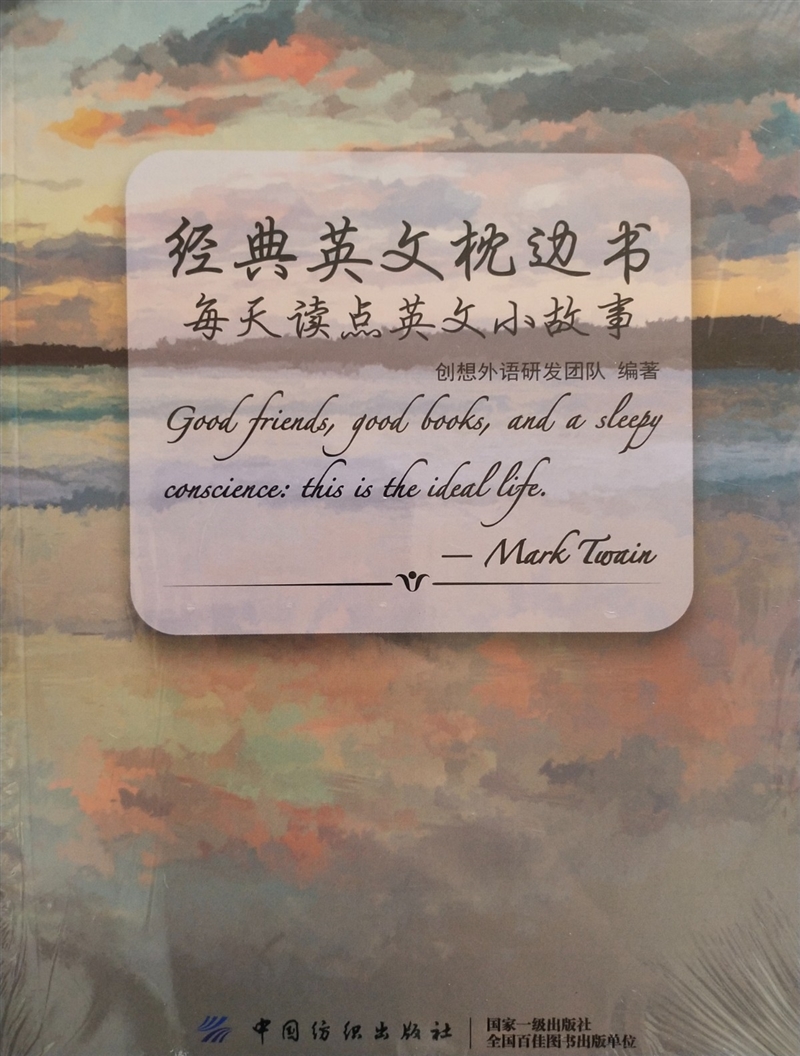 经典英文枕边书
每天读点英文小故事
创想外语研发团队 编著
Good friends, good books, and a sleepy
conscience: this is the ideal life.
— Mark Twain
中国纺织出版社
国家一级出版社
全国百佳图书出版单位